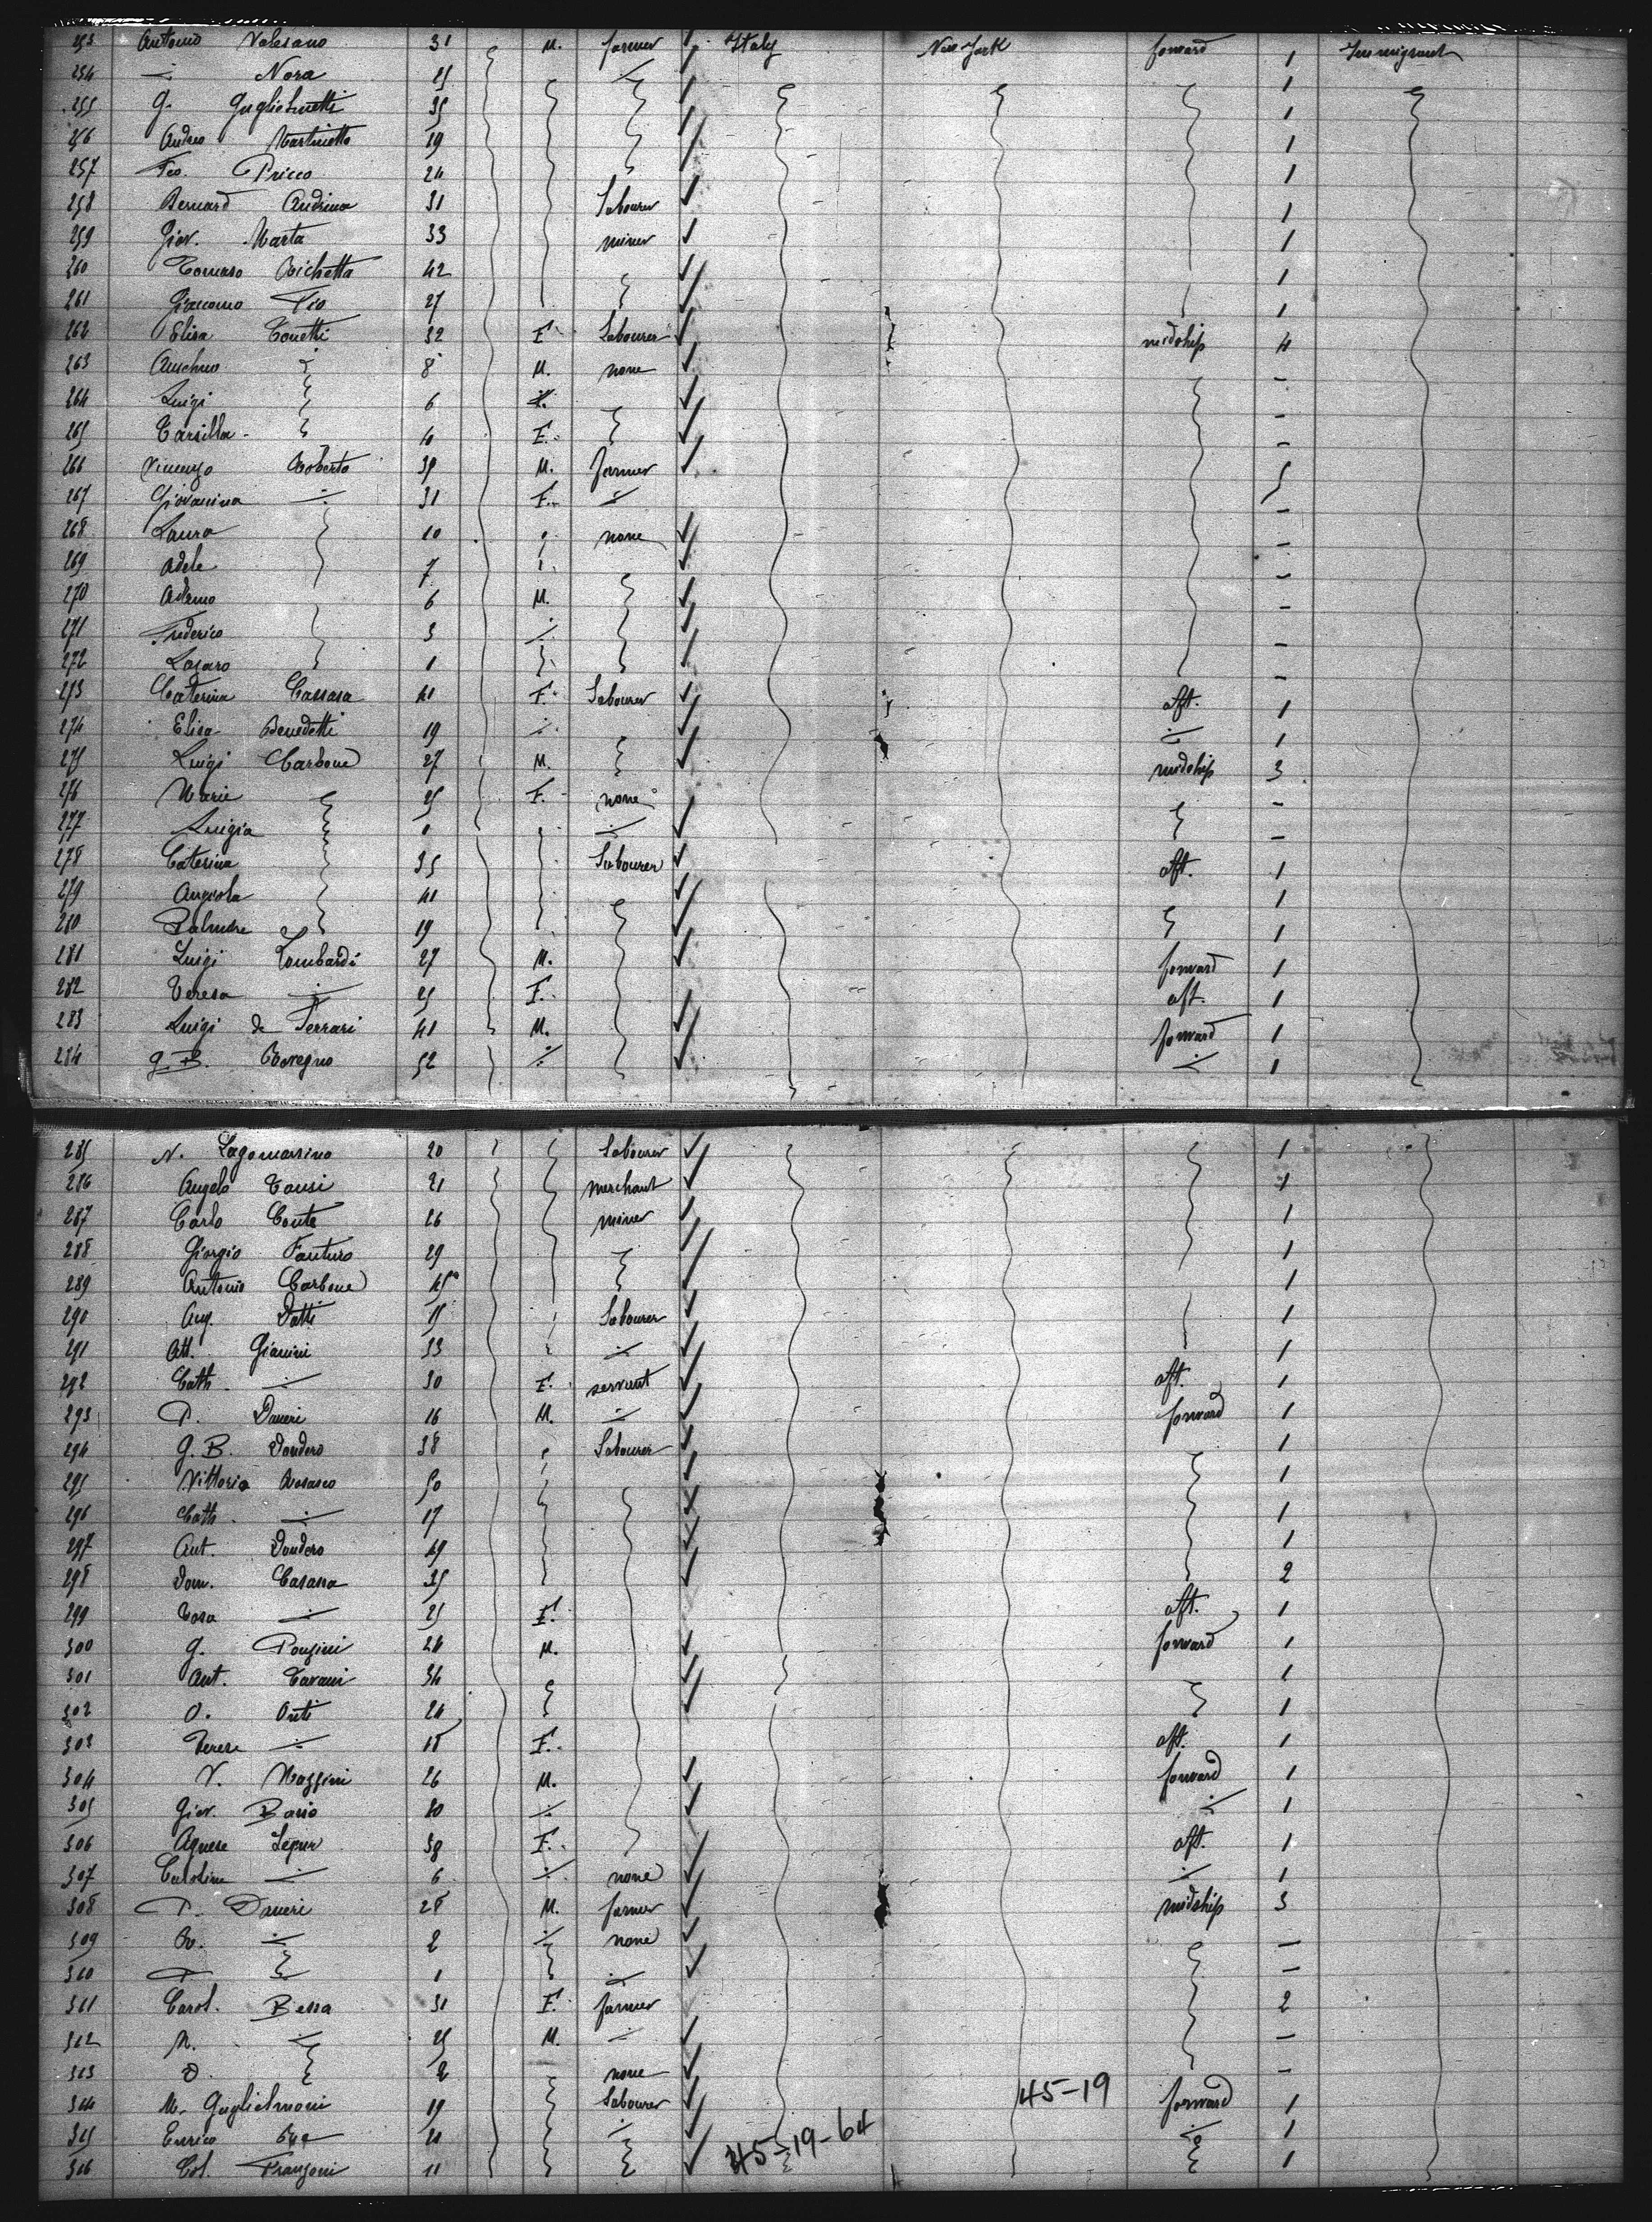 253 Antonio Valesano 31 M. farmer Italy New York forward 1 Immigrant
254 Nora 25 1
255 G. Guglielmetti 35 1
256 Andrea Martinetto 29 1
257 Fco. Pricco 24 1
258 Bernard Andrina 31 Labourer 1
259 Giov. Marta 33 miner 1
260 Tomaso Bichetta 42 1
261 Giacomo Fio 27 1
262 Elisa Conetti 32 F. Labourer midship 4
263 8 M. none -
264 Luigi 6 -
265 Tarsilla 4 F. -
266 Vincenzo Roberto 39 M. farmer 5
267 Giovanina 31 F. -
268 Laura 10 none -
269 Adele 7 -
270 Adamo 6 M. -
271 Frederico 3 -
272 Lazaro 1 -
273 Caterina Cassasa 41 F. Labourer aft. 1
274 Elisa Benedetti 19 1
275 Luigi Carbone 27 M. midship 3
276 Marie 25 F. none -
277 Luigia -
278 Caterina 35 Labourer aft. 1
279 Angiola 41 1
280 19 1
281 Luigi Lombardi 27 M. forward 1
282 Teresa 25 F. aft. 1
283 Luigi de Ferrari 41 M. forward 1
284 G.B. Bovegno 52 1
285 N. Lagomarsino 20 Labourer 1
286 Angelo Tonsi 21 merchant 1
287 Carlo Conte 26 miner 1
288 Giorgio Fanturo 29 1
289 Antonio Carbone 45 1
290 Aug. Datti Labourer 1
291 Att. Gianini 33 1
292 Cath. 30 F. servant aft. 1
293 P. Daneri 16 M. forward 1
294 G.B. Dondero 38 Labourer 1
295 Vittorio Rosasco 50 1
296 Cath. 17 1
297 Ant. Dondero 49 1
298 Dom. Casassa 35 2
299 Rosa 25 F. aft. 1
300 G. Ponzini 24 M. forward 1
301 Ant. Cavani 34 1
302 O. 24 1
303 Terese 18 F. aft. 1
304 V. Mazzini 26 M. forward 1
305 Giov. Basio 1
306 Agnese 38 F. aft. 1
307 Carolina 6 none 1
308 P. Daneri 28 M. farmer midship 3
309 2 none -
310 P. 1 -
311 Carol. Bessa 31 F. farmer 2
312 N. 25 M. -
313 D. 2 none -
314 M. Guglielmoni 19 Labourer 45-19 forward 1
315 Enrico 1
316 Col. Franzoni 45-19-64 1